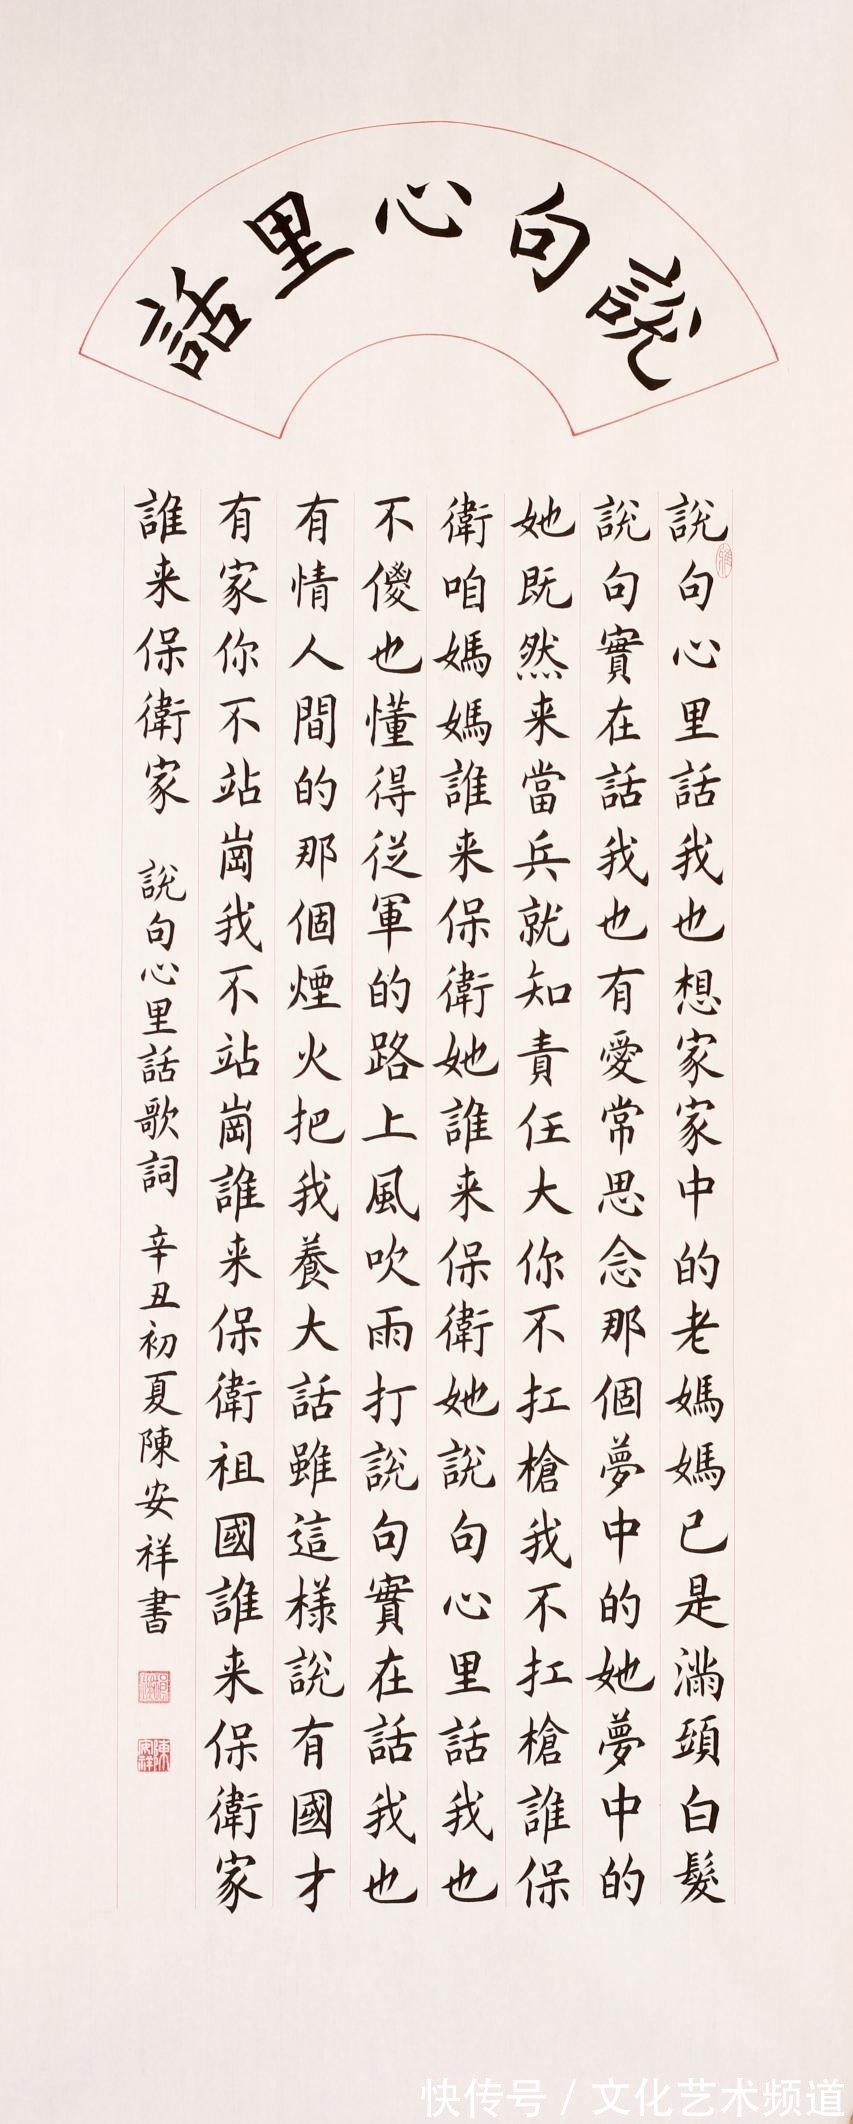 說句心里話
說句心里話我也想家家中的老媽媽已是滿頭白髮
說句實在話我也有愛常思念那個夢中的她夢中的
她既然来當兵就知責任大你不扛槍我不扛槍誰保
衛咱媽媽誰来保衛她誰来保衛她說句心里話我也
不傻也懂得從軍的路上風吹雨打說句實在話我也
有情人間的那個煙火把我養大話雖這樣說有國才
有家你不站崗我不站崗誰来保衛祖國誰来保衛家
誰来保衛家 說句心里話歌詞 辛丑初夏陳安祥書
陳安祥
快传号 / 文化艺术频道